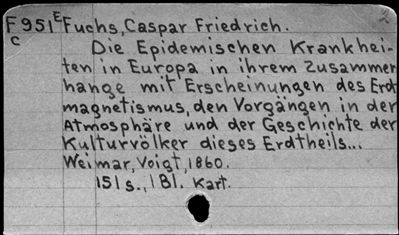 F951E Fuchs, Caspar Friedrich.
C
Die Epidemischen Krankhei-
ten in Europa in ihrem Zusammen
hange mit Erscheinungen des Erd
magnetismus, den Vorgängen in der
Atmosphäre und der Geschichte der
Kulturvölker dieses Erdtheils...
Weimar, Voigt, 1860.
151 s., 1 Bl. Kart.